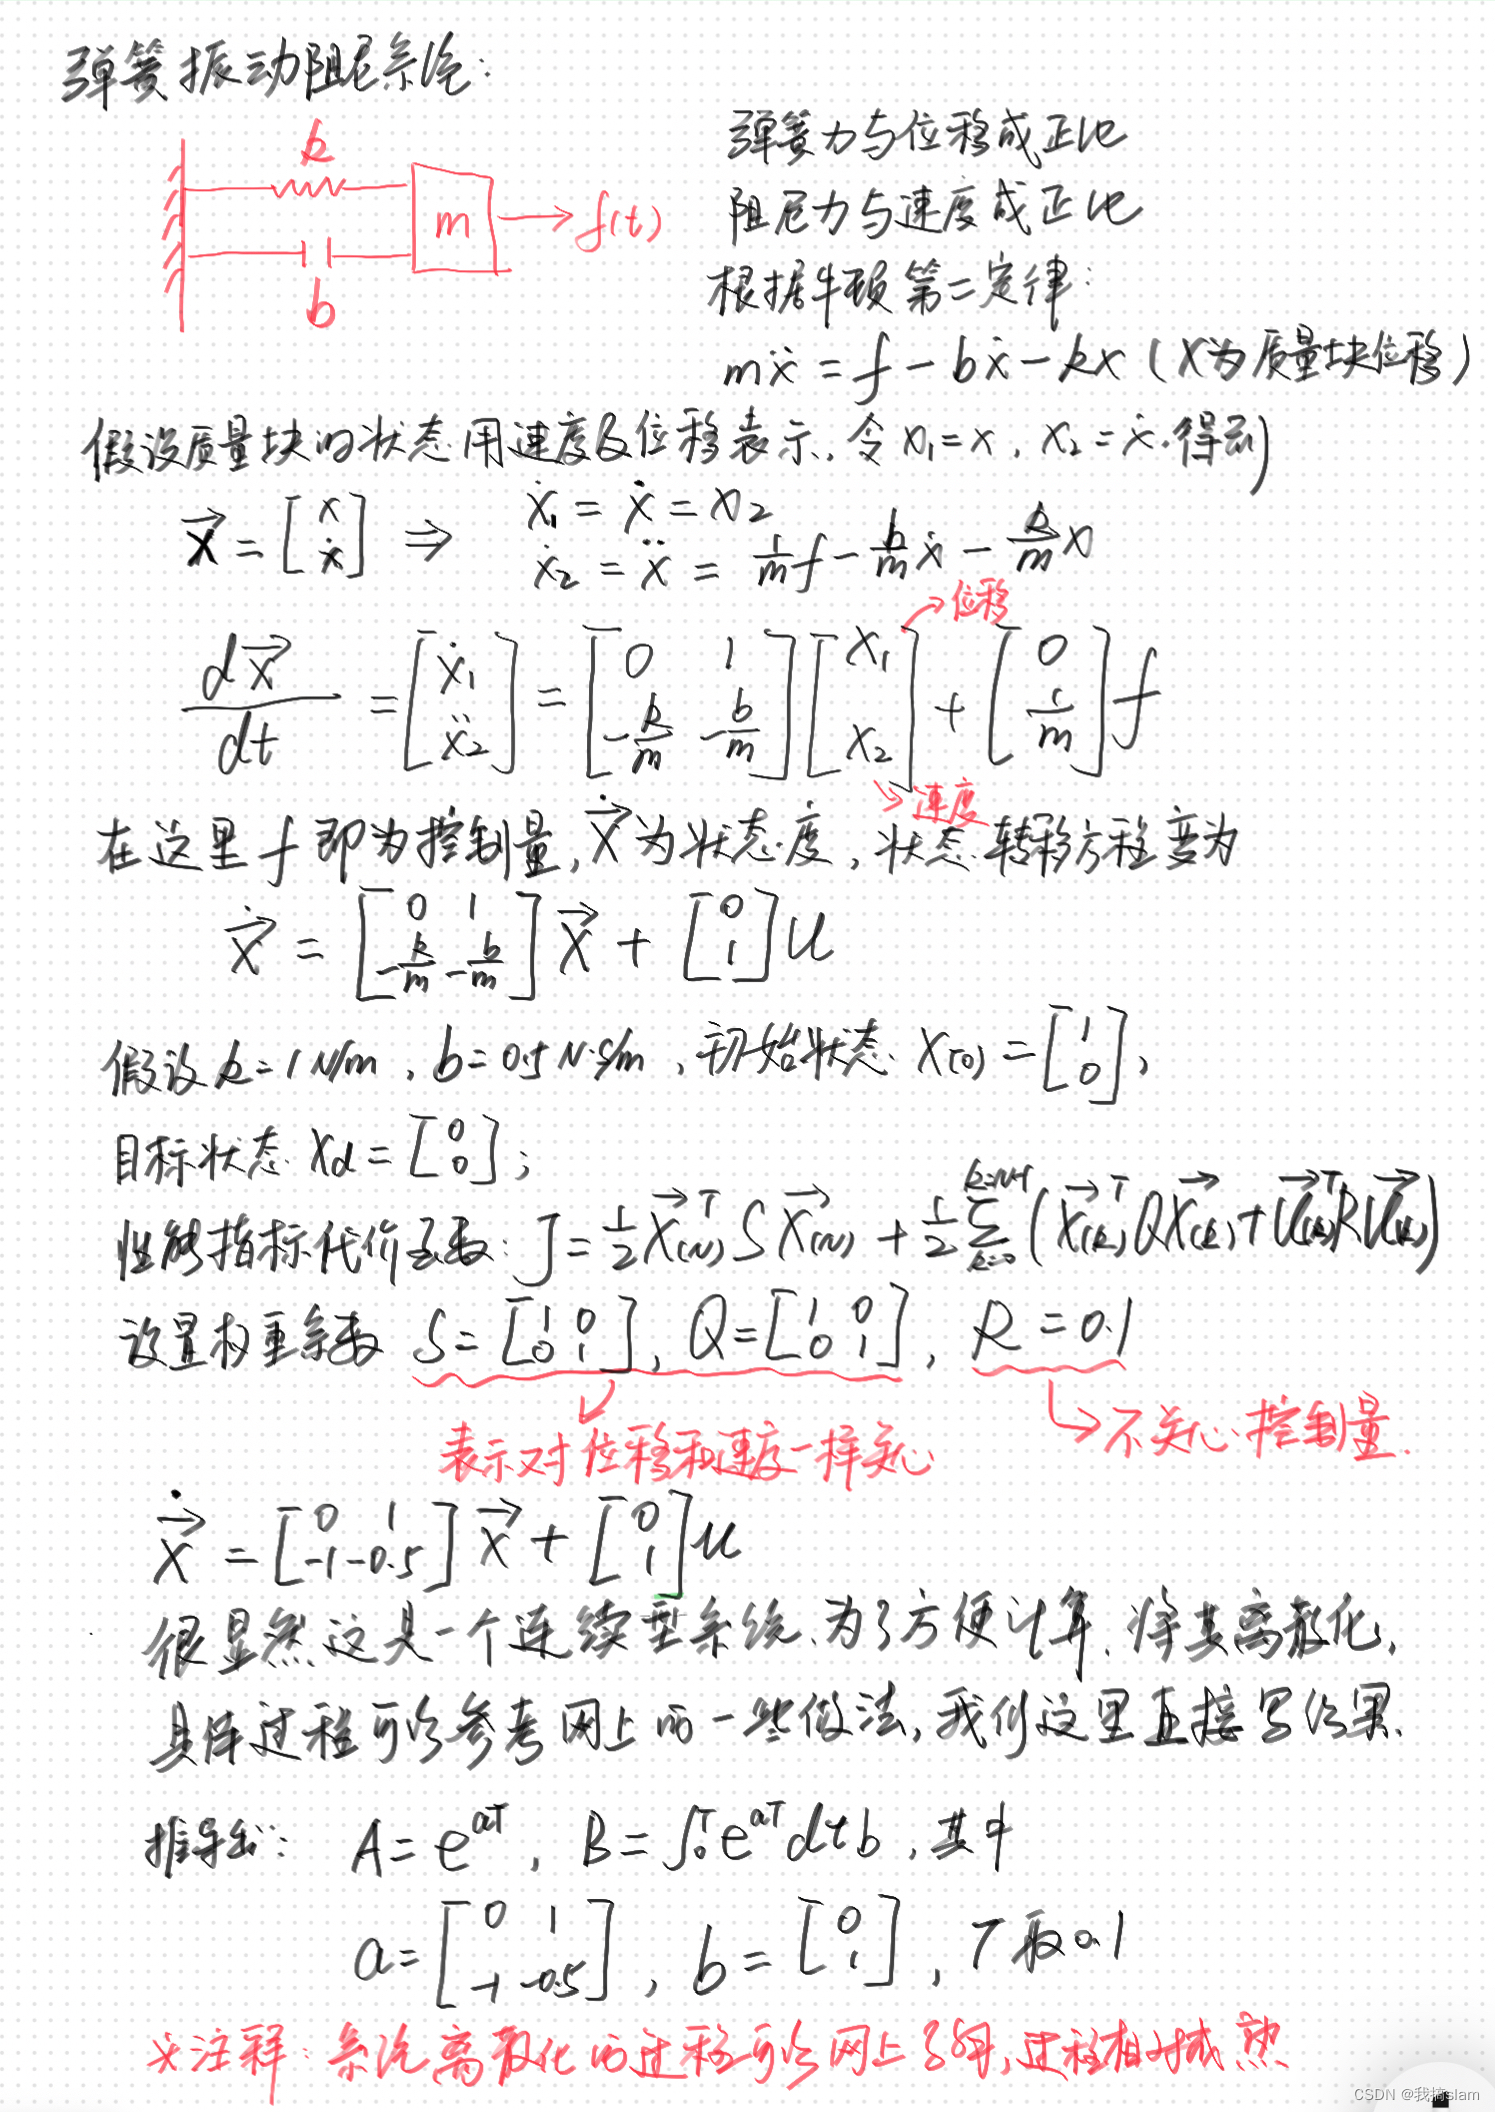 弹簧振动阻尼系统:
k
m
f(t)
b
弹簧力与位移成正比
阻尼力与速度成正比
根据牛顿第二定律:
mẍ = f - bẋ - kx (x为质量块位移)
假设质量块的状态用速度及位移表示, 令 x₁=x, x₂=ẋ. 得到
X⃗ = [x; ẋ] ⇒ ẋ₁ = ẋ = x₂
ẋ₂ = ẍ = 1/m f - b/m ẋ - k/m x
dX⃗/dt = [ẋ₁; ẍ₂] = [0 1; -k/m -b/m] [x₁; x₂] + [0; 1/m] f
位移
速度
在这里 f 即为控制量, Ẋ⃗ 为状态度, 状态转移方程变为
Ẋ⃗ = [0 1; -k/m -b/m] X⃗ + [0; 1] u
假设 k=1 N/m, b=0.5 N·s/m, 初始状态 X(0) = [1; 0],
目标状态 Xd = [0; 0];
性能指标代价函数: J = ½ X⃗(N)ᵀ S X⃗(N) + ½ Σ_{k=0}^{k=N-1} (X⃗(k)ᵀ Q X⃗(k) + U⃗(k)ᵀ R U⃗(k))
设置权重系数 S = [1 0; 0 1], Q = [1 0; 0 1], R = 0.1
表示对位移和速度一样关心
不关心控制量.
Ẋ⃗ = [0 1; -1 -0.5] X⃗ + [0; 1] u
很显然这是一个连续型系统、为了方便计算, 将其离散化,
具体过程可以参考网上的一些做法, 我们这里直接写结果.
推导出: A = e^{aT}, B = ∫₀ᵀ e^{aT} dt b, 其中
a = [0 1; -1 -0.5], b = [0; 1], T 取 0.1
※注释: 系统离散化的过程可以网上了解, 过程相对成熟
CSDN @我搞slam